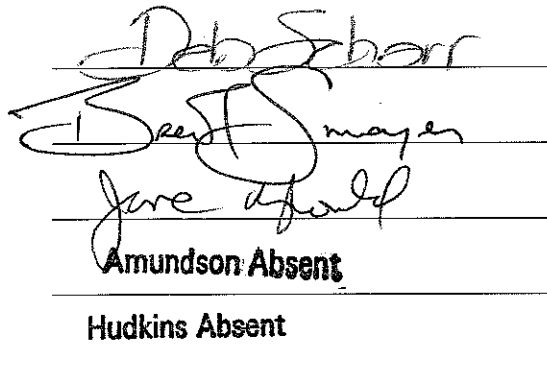 Deb Schorr
Brent Smoyer
Jane
Amundson Absent
Hudkins Absent